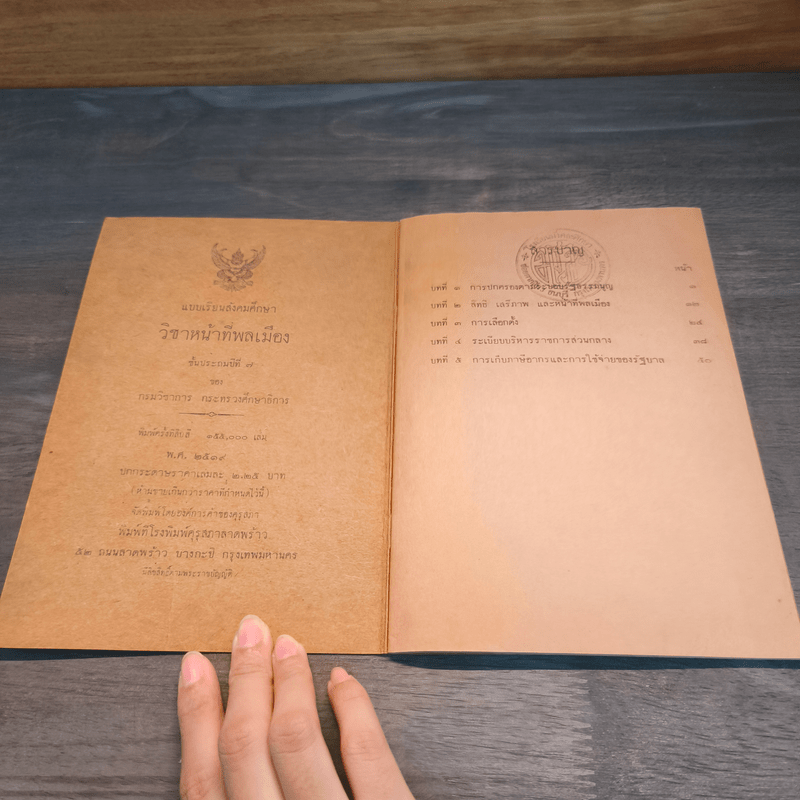 แบบเรียนสังคมศึกษา
วิชาหน้าที่พลเมือง
ชั้นประถมปีที่ ๗
ของ
กรมวิชาการ กระทรวงศึกษาธิการ
พิมพ์ครั้งที่สิบสี่ ๑๕๕,๐๐๐ เล่ม
พ.ศ. ๒๕๑๙
ปกกระดาษราคาเล่มละ ๒.๒๕ บาท
(ห้ามขายเกินกว่าราคาที่กำหนดไว้นี้)
จัดพิมพ์โดยองค์การค้าของคุรุสภา
พิมพ์ที่โรงพิมพ์คุรุสภาลาดพร้าว
๕๒ ถนนลาดพร้าว บางกะปิ กรุงเทพมหานคร
มีลิขสิทธิ์ตามพระราชบัญญัติ
สารบาญ
หน้า
บทที่ ๑ การปกครองตามระบอบรัฐธรรมนูญ ๑
บทที่ ๒ สิทธิ เสรีภาพ และหน้าที่พลเมือง ๑๓
บทที่ ๓ การเลือกตั้ง ๒๕
บทที่ ๔ ระเบียบบริหารราชการส่วนกลาง ๓๕
บทที่ ๕ การเก็บภาษีอากรและการใช้จ่ายของรัฐบาล ๕๐